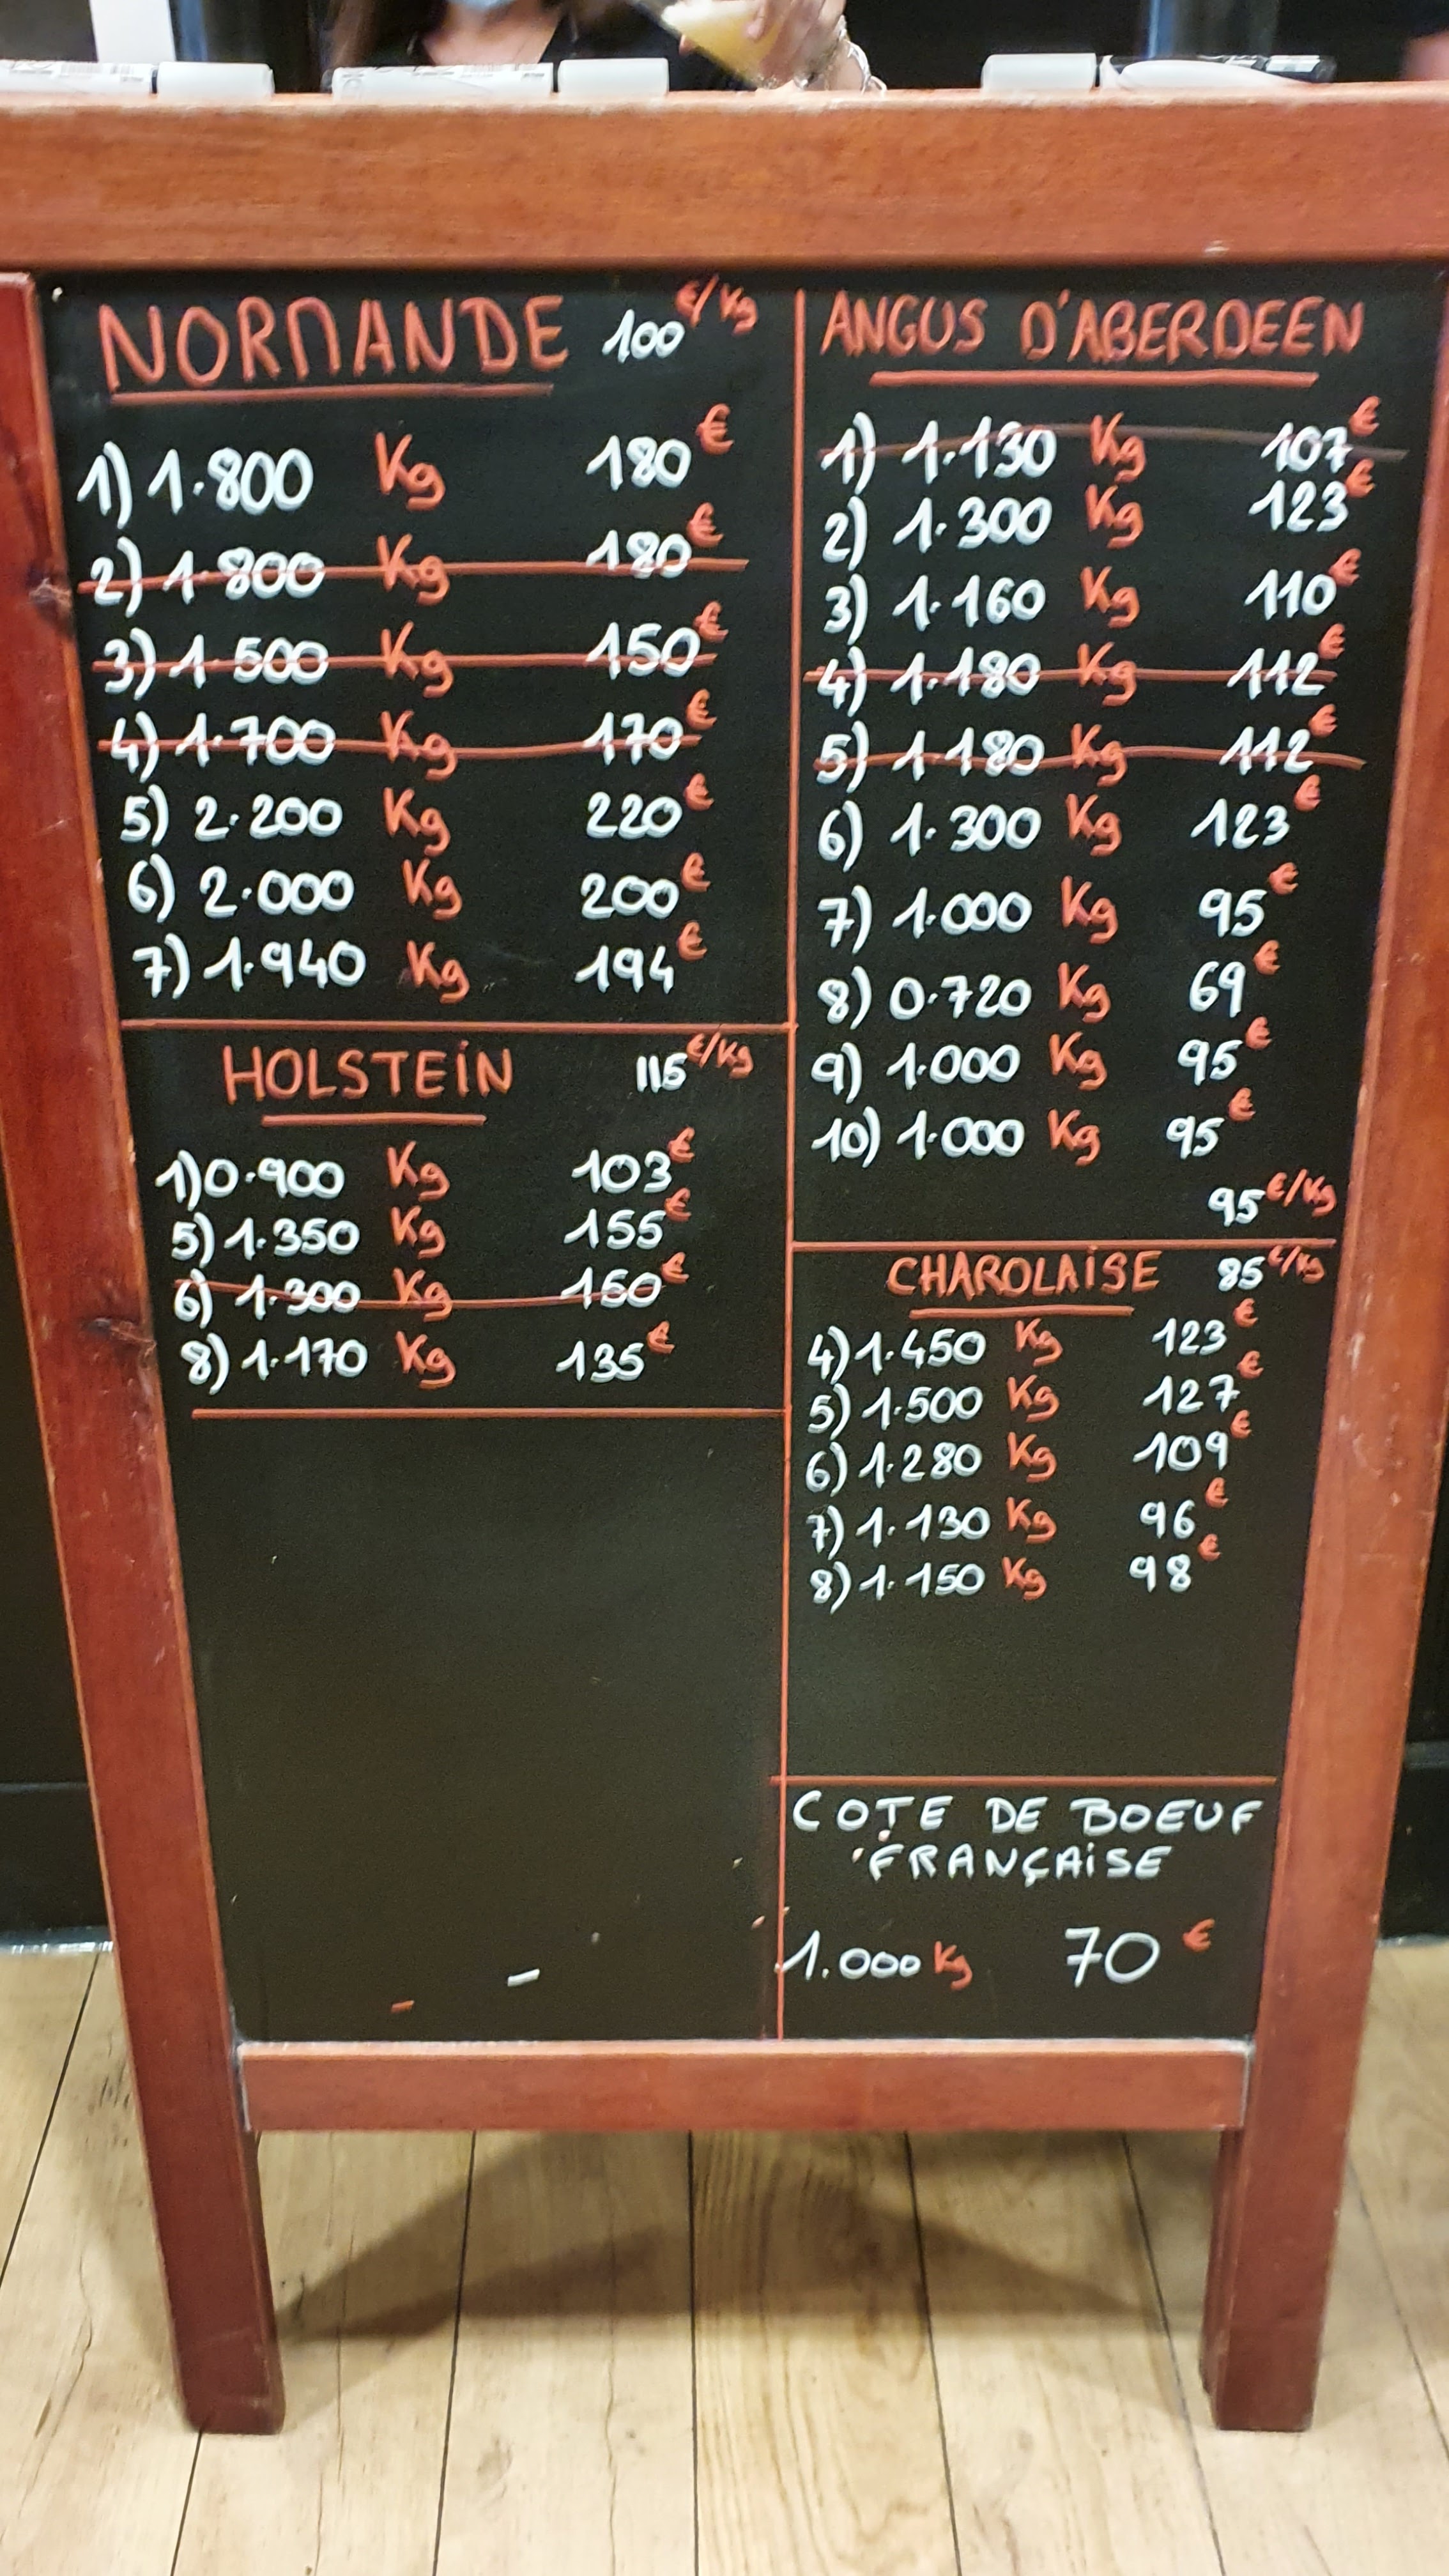 NORMANDE 100 €/Kg
1) 1.800 Kg 180 €
2) 1.800 Kg 180 €
3) 1.500 Kg 150 €
4) 1.700 Kg 170 €
5) 2.200 Kg 220 €
6) 2.000 Kg 200 €
7) 1.940 Kg 194 €
HOLSTEIN 115 €/Kg
1) 0.900 Kg 103 €
5) 1.350 Kg 155 €
6) 1.300 Kg 150 €
8) 1.170 Kg 135 €
ANGUS D'ABERDEEN
1) 1.130 Kg 107 €
2) 1.300 Kg 123 €
3) 1.160 Kg 110 €
4) 1.180 Kg 112 €
5) 1.180 Kg 112 €
6) 1.300 Kg 123 €
7) 1.000 Kg 95 €
8) 0.720 Kg 69 €
9) 1.000 Kg 95 €
10) 1.000 Kg 95 €
95 €/Kg
CHAROLAISE 85 €/Kg
4) 1.450 Kg 123 €
5) 1.500 Kg 127 €
6) 1.280 Kg 109 €
7) 1.130 Kg 96 €
8) 1.150 Kg 98 €
COTE DE BOEUF
FRANÇAISE
1.000 Kg 70 €